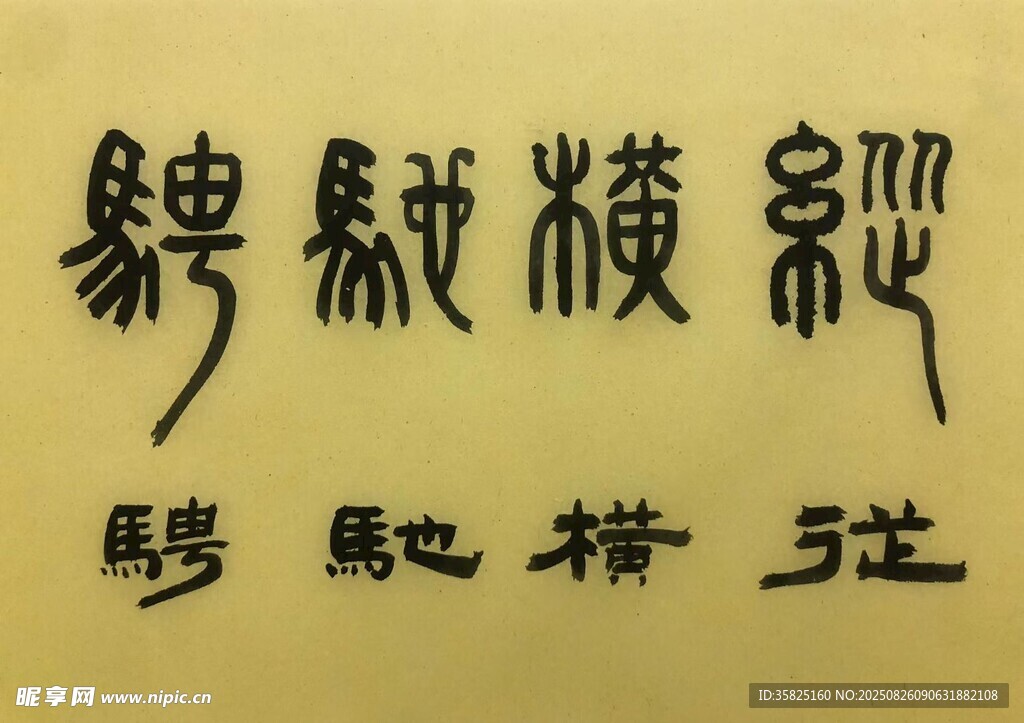 縱横馳騁
従横馳騁
昵享网 www.nipic.cn
ID:35825160 NO:20250826090631882108